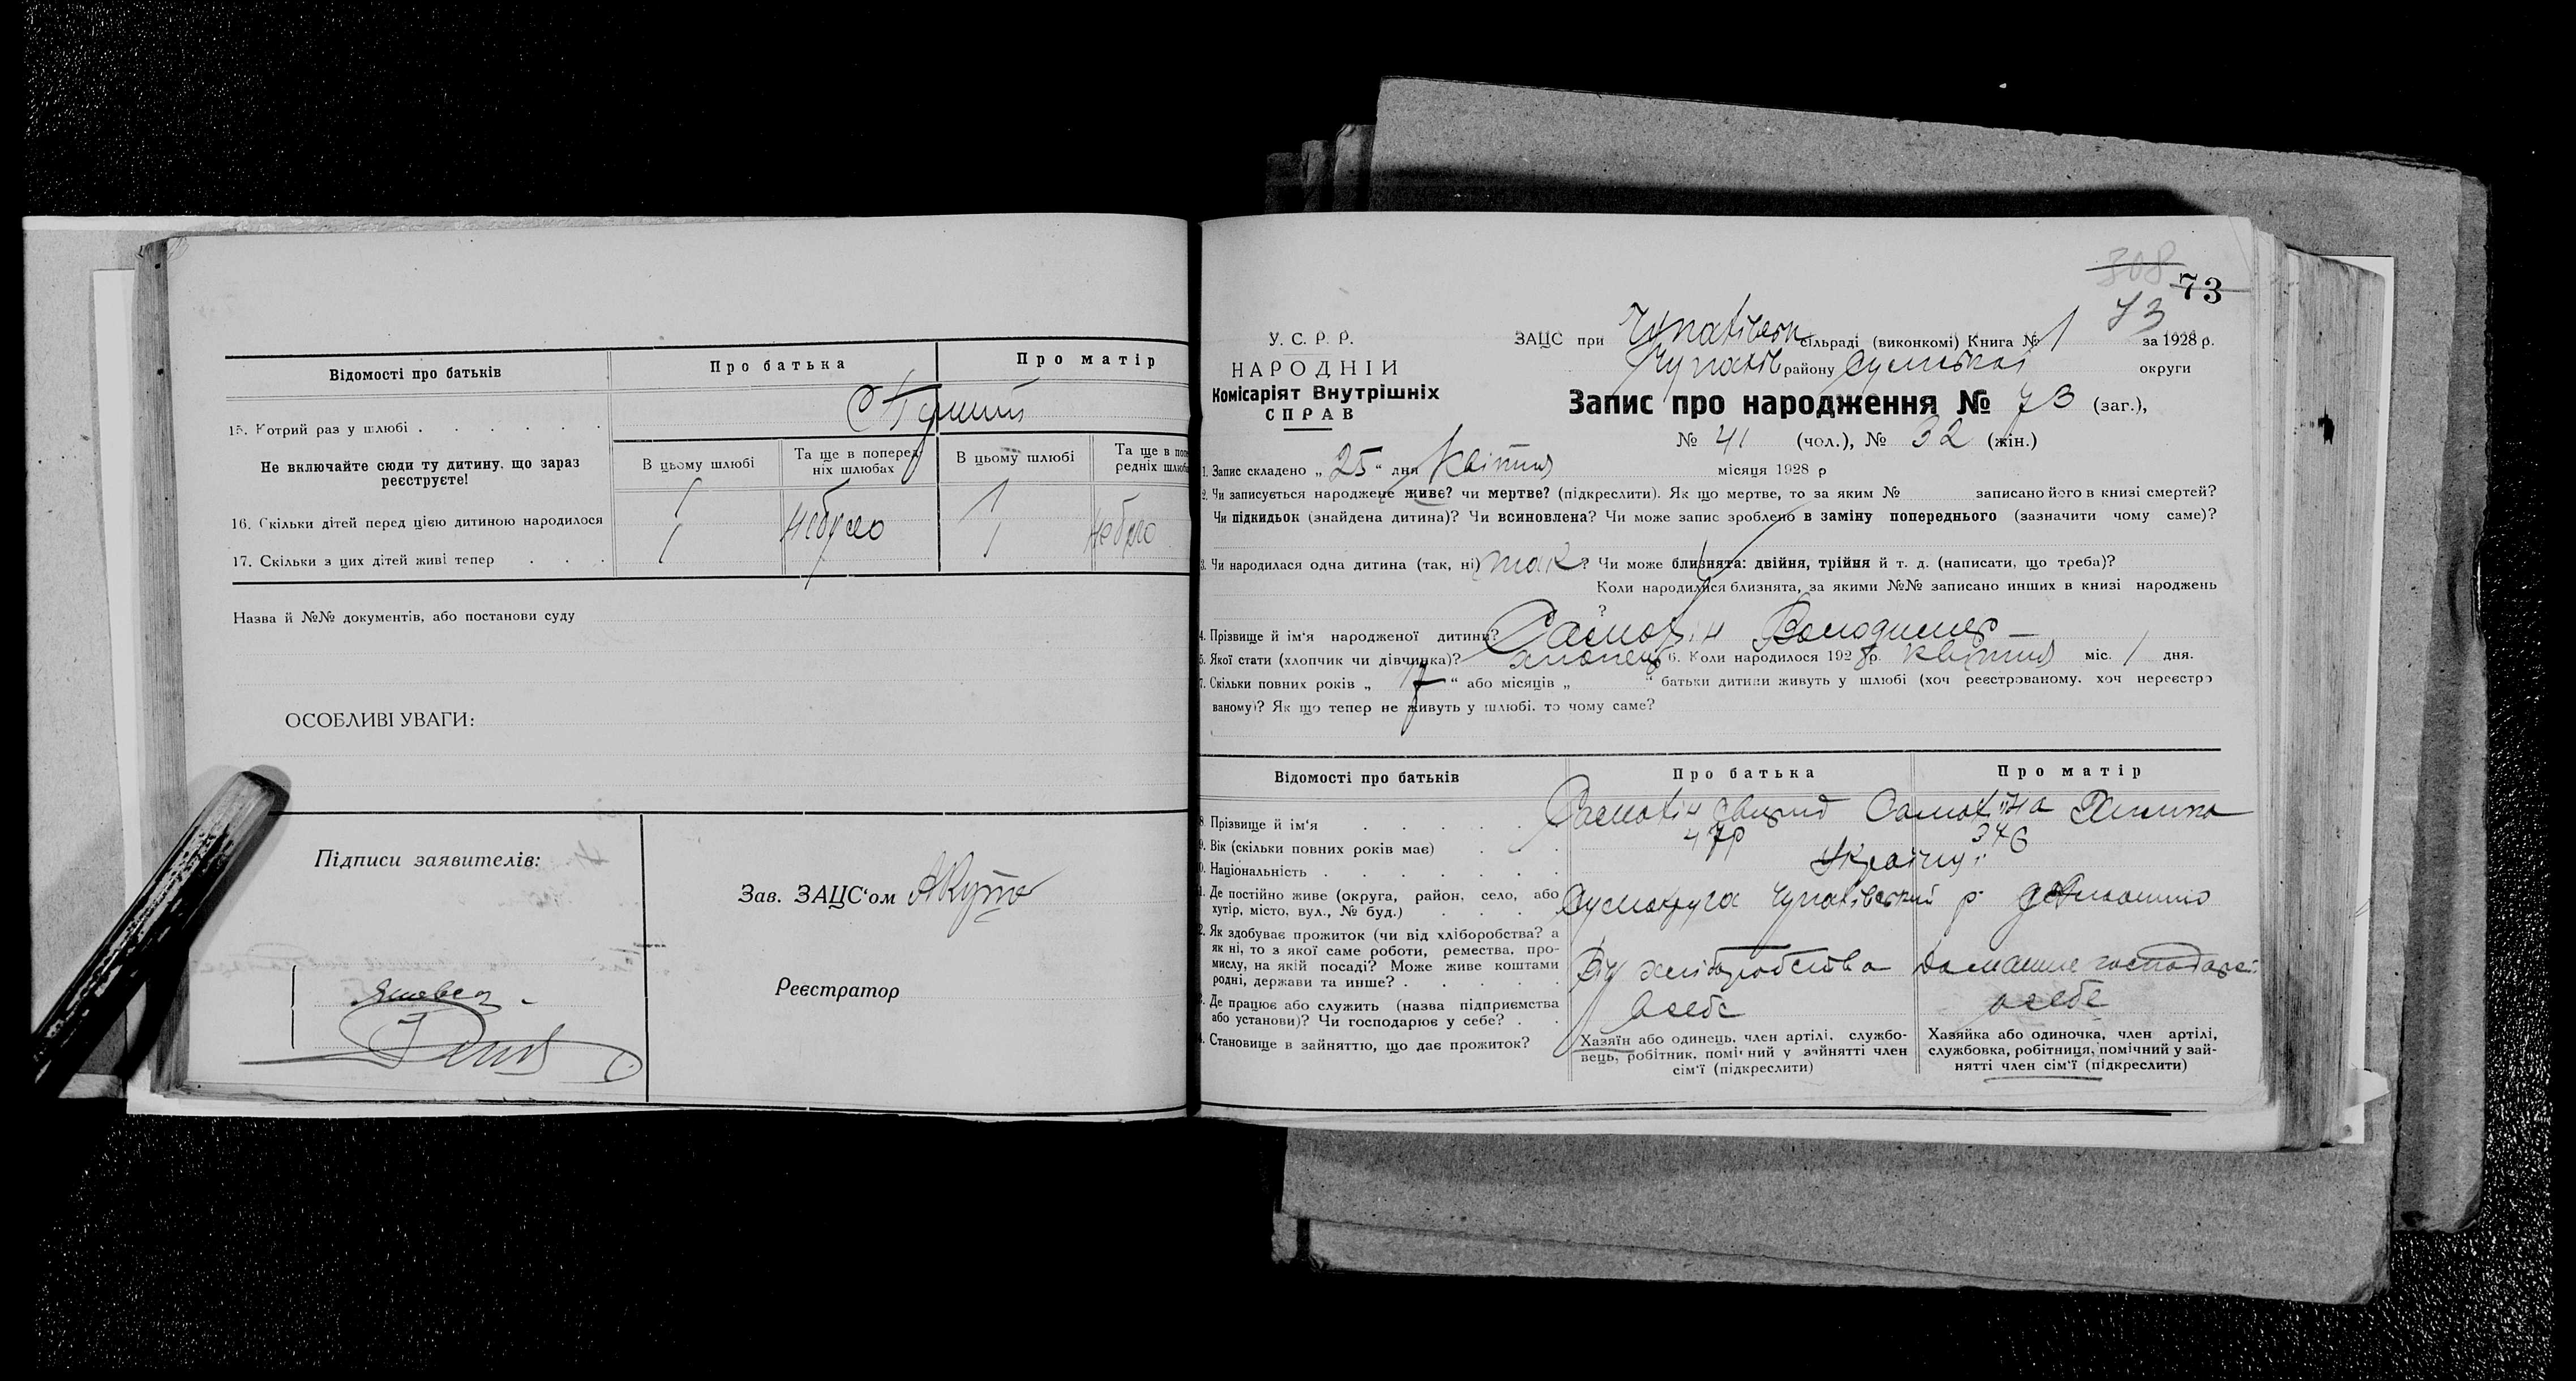 Відомості про батьків
Про батька
Про матір
15. Котрий раз у шлюбі . . . . . .
Не включайте сюди ту дитину, що зараз реєструєте!
В цьому шлюбі
Та ще в поперед-
ніх шлюбах
В цьому шлюбі
Та ще в попе
редніх шлюба
16. Скільки дітей перед цією дитиною народилося
1
Небуло
1
Небуло
17. Скільки з цих дітей живі тепер . . .
1
1
Назва й №№ документів, або постанови суду
ОСОБЛИВІ УВАГИ:
Підписи заявителів:
Зав. ЗАЦС'ом
Реєстратор
308
73
73
У. С. Р. Р.
НАРОДНІЙ
Комісаріят Внутрішніх
СПРАВ
ЗАЦС при Чупахівськ сільраді (виконкомі) Книга № 1 за 1928 р.
Чупахів району Сумської округи
Запис про народження № 73 (заг.),
№ 41 (чол.), № 32 (жін.)
1. Запис складено „ 25 “ дня Квітня місяця 1928 р
2. Чи записується народжене живе? чи мертве? (підкреслити). Як що мертве, то за яким № записано його в книзі смертей?
Чи підкидьок (знайдена дитина)? Чи всиновлена? Чи може запис зроблено в заміну попереднього (зазначити чому саме)?
3. Чи народилася одна дитина (так, ні) так ? Чи може близнята: двійня, трійня й т. д. (написати, що треба)?
Коли народилися близнята, за якими №№ записано инших в книзі народжень
?
4. Прізвище й ім'я народженої дитини? Самохін Володимер
5. Якої стати (хлопчик чи дівчинка)? хлопець 6. Коли народилося 1928 р. квітня міс. 1 дня.
7. Скільки повних років „ 17 “ або місяців „ “ батьки дитини живуть у шлюбі (хоч реєстрованому, хоч нереєстро
ваному)? Як що тепер не живуть у шлюбі, то чому саме?
Відомості про батьків
Про батька
Про матір
8. Прізвище й ім'я . . . . . Самохін Самохіна
9. Вік (скільки повних років має) . . . 47р 34
10. Національність . . . . . . .
11. Де постійно живе (округа, район, село, або
хутір, місто, вул., № буд.) . . . Сумокруга Чупахівський р
12. Як здобуває прожиток (чи від хліборобства? а
як ні, то з якої саме роботи, ремества, про-
мислу, на якій посаді? Може живе коштами
родні, держави та инше? . . . . . Від хліборобства Домашне господарст
13. Де працює або служить (назва підприємства
або установи)? Чи господарює у себе? . . всебе
всебе
14. Становище в зайняттю, що дає прожиток?
Хазяїн або одинець, член артілі, службо-
вець, робітник, помічний у зайнятті член
сім'ї (підкреслити)
Хазяйка або одиночка, член артілі,
службовка, робітниця, помічний у зай-
нятті член сім'ї (підкреслити)